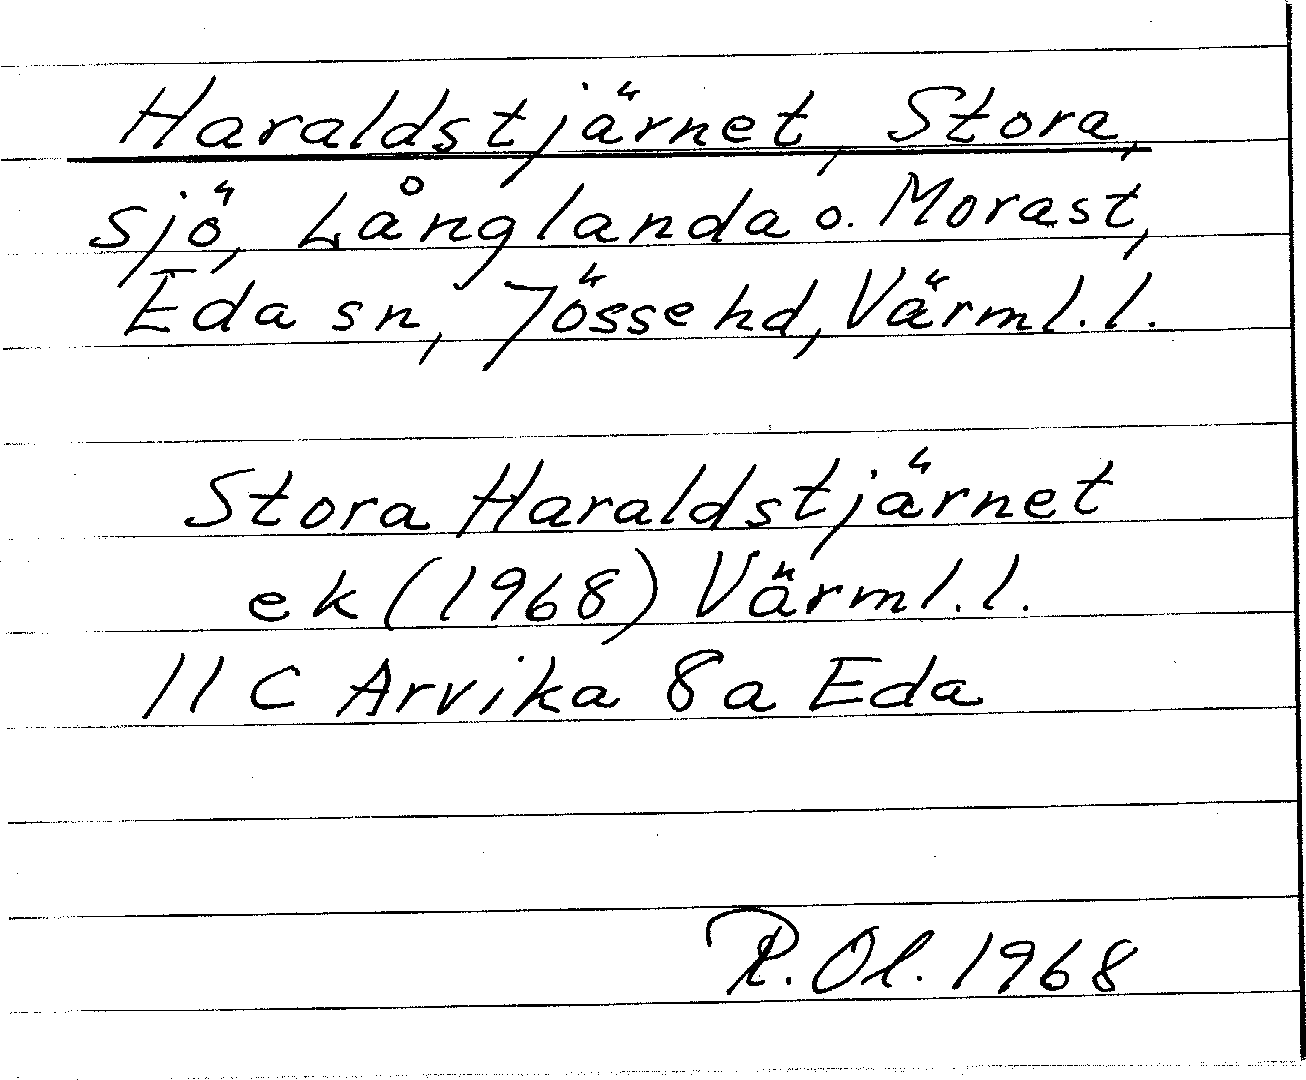 Haraldstjärnet, Stora,
sjö, Långlanda o. Morast,
Eda sn, Jösse hd, Värml. l.
Stora Haraldstjärnet
ek (1968) Värml. l.
11 C Arvika 8a Eda
R. Ol. 1968